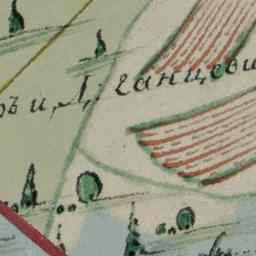 ръ и Л: ганцеви